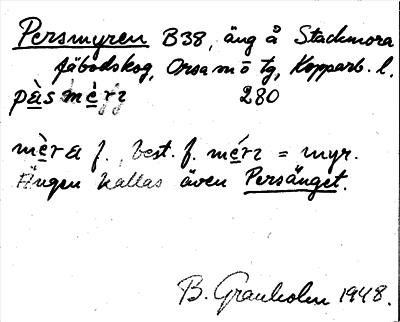 Persmyren B38, äng å Stackmora
fäbodskog, Orsa m ö tg, Kopparb. l.
pàs mèrz 280
mèra f., best. f. mérz = myr.
Ängen kallas även Persänget.
B. Granholm 1948.